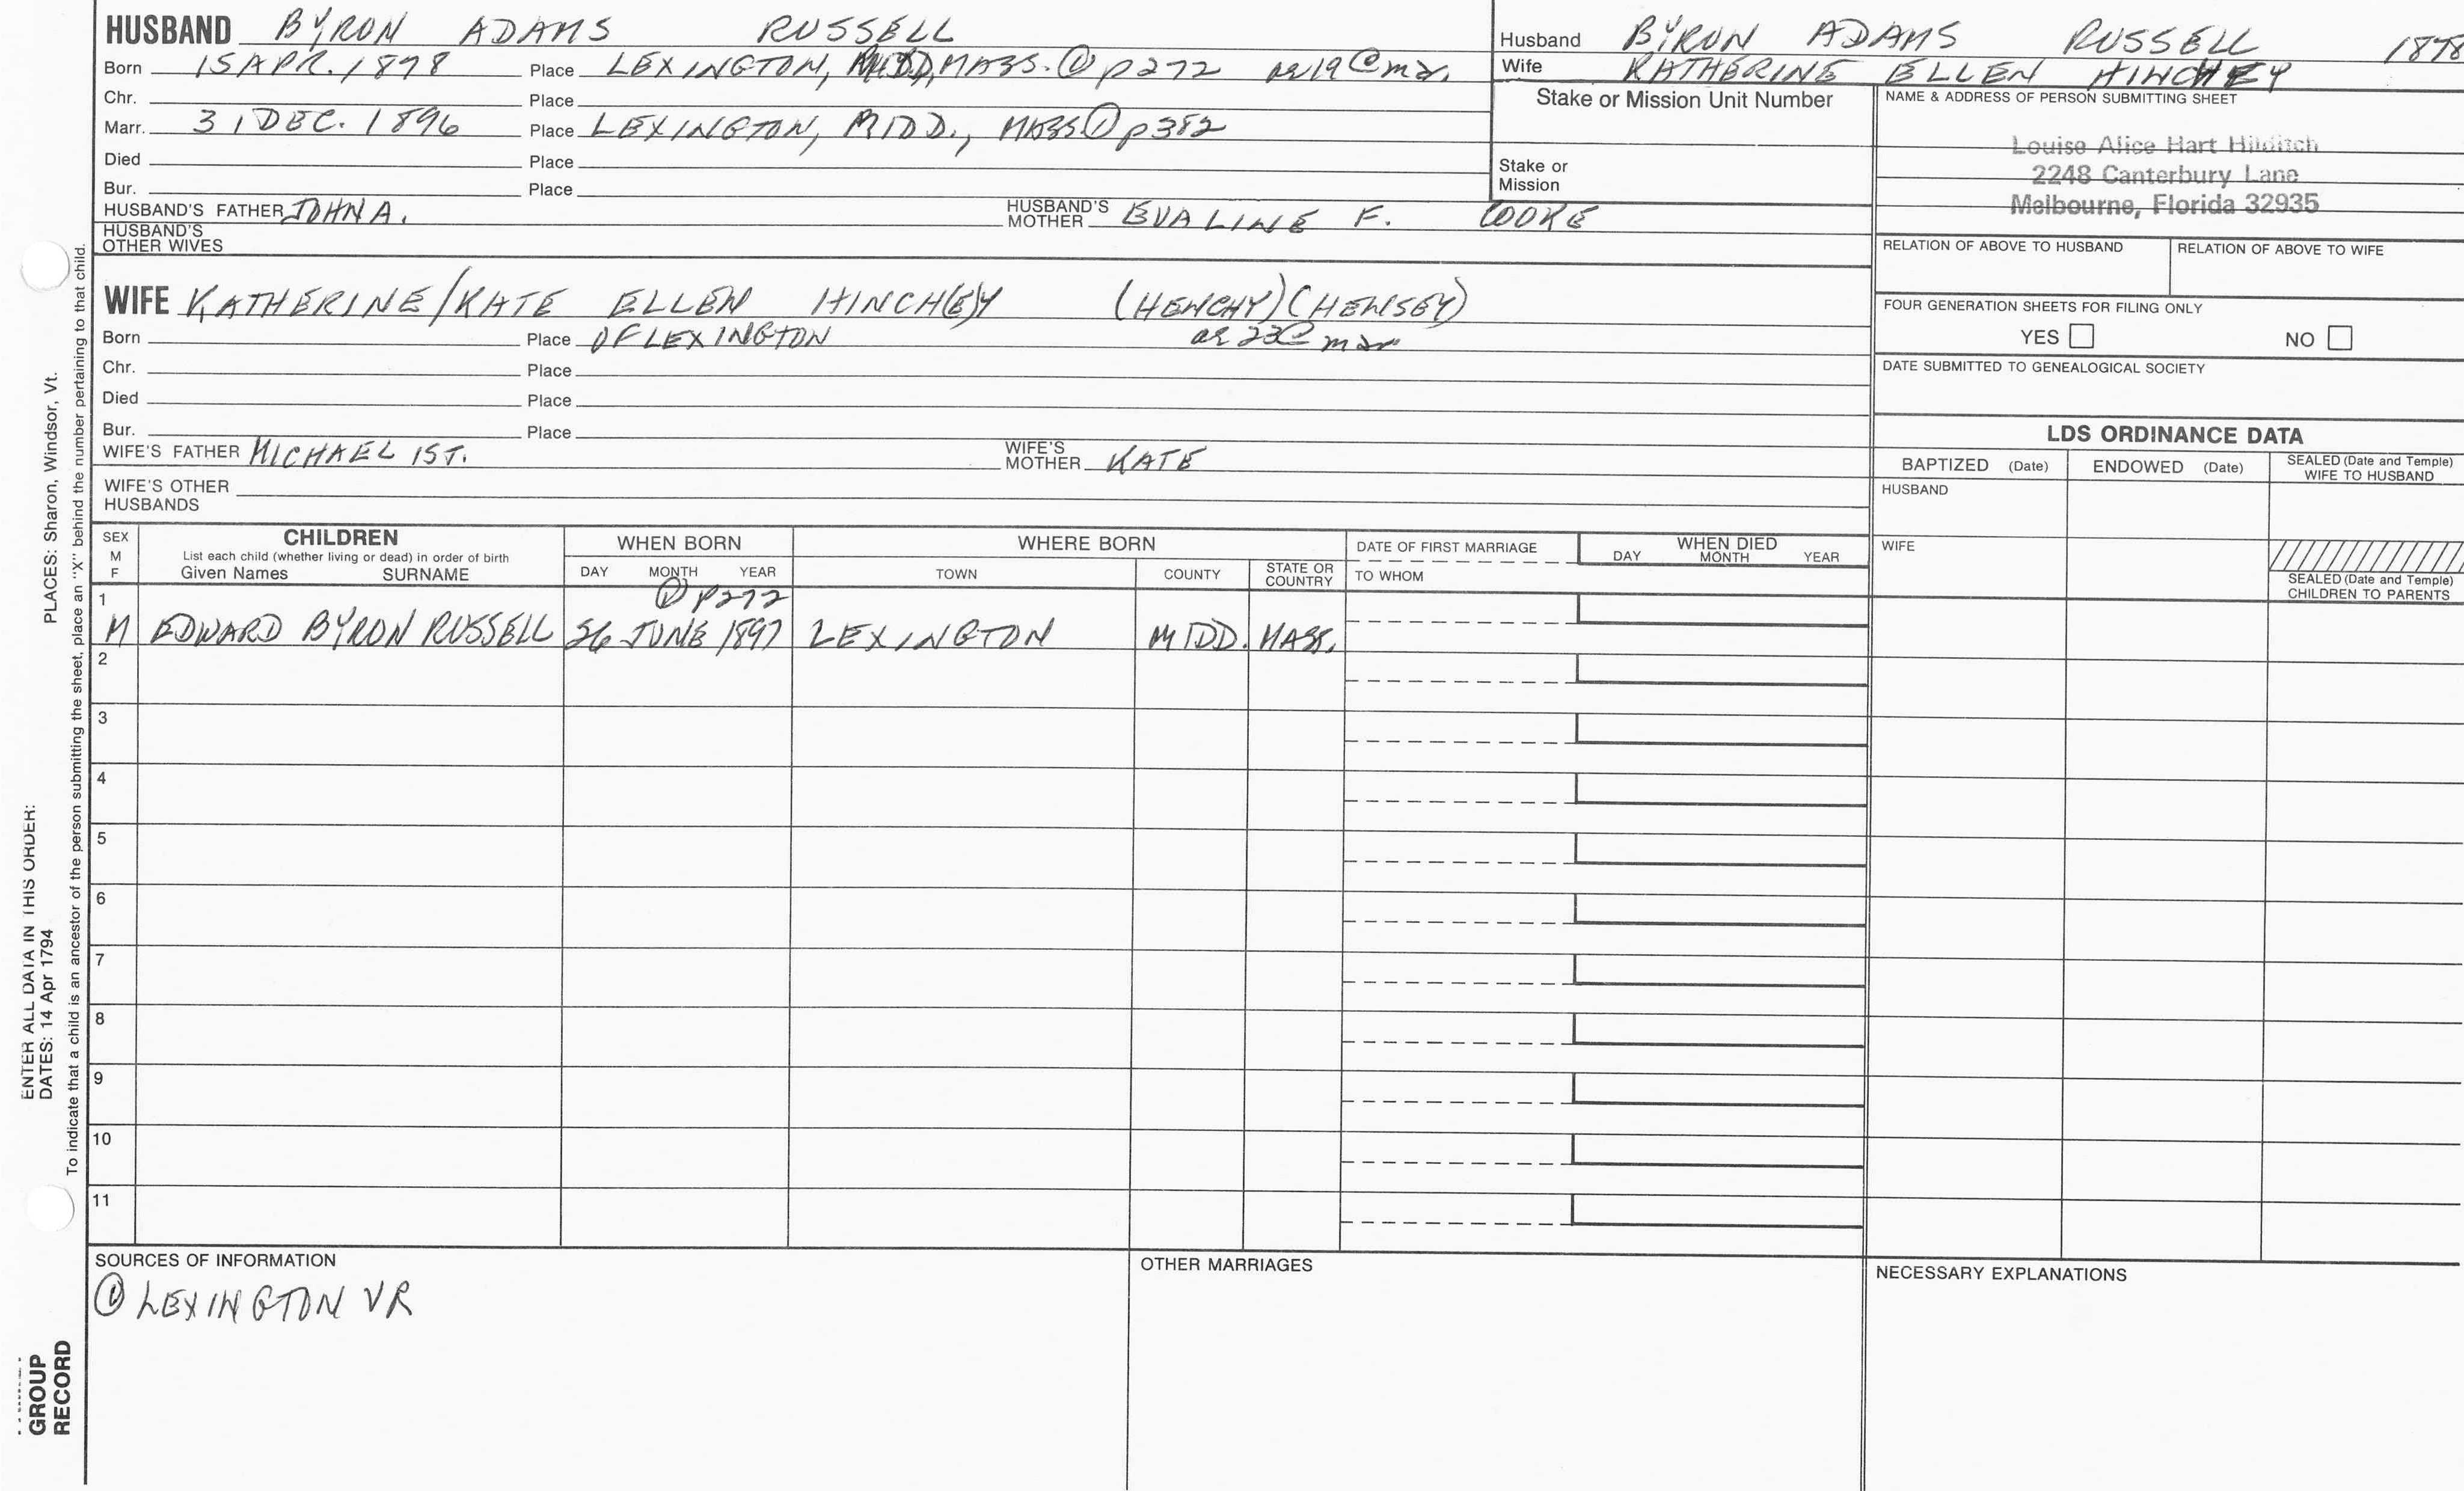 HUSBAND BYRON ADAMS RUSSELL
Born 15 APR. 1878 Place LEXINGTON, MIDD, MASS. ① p272 ae 19 @ mar.
Chr. Place
Marr. 31 DEC. 1896 Place LEXINGTON, MIDD., MASS ① p382
Died Place
Bur. Place
HUSBAND'S FATHER JOHN A. HUSBAND'S MOTHER EVALINE F. COOKE
HUSBAND'S OTHER WIVES
Husband BYRON ADAMS RUSSELL 1878
Wife KATHERINE ELLEN HINCHEY
Stake or Mission Unit Number
Stake or Mission
NAME & ADDRESS OF PERSON SUBMITTING SHEET
Louise Alice Hart Hilditch
2248 Canterbury Lane
Melbourne, Florida 32935
RELATION OF ABOVE TO HUSBAND RELATION OF ABOVE TO WIFE
FOUR GENERATION SHEETS FOR FILING ONLY
YES NO
DATE SUBMITTED TO GENEALOGICAL SOCIETY
WIFE KATHERINE/KATE ELLEN HINCH(E)Y (HENCHY) (HENSEY)
Born Place OF LEXINGTON ae 23 @ mar
Chr. Place
Died Place
Bur. Place
WIFE'S FATHER MICHAEL 1ST. WIFE'S MOTHER KATE
WIFE'S OTHER HUSBANDS
LDS ORDINANCE DATA
BAPTIZED (Date) ENDOWED (Date) SEALED (Date and Temple) WIFE TO HUSBAND
HUSBAND
WIFE
SEALED (Date and Temple) CHILDREN TO PARENTS
SEX M F
CHILDREN
List each child (whether living or dead) in order of birth
Given Names SURNAME
WHEN BORN
DAY MONTH YEAR
WHERE BORN
TOWN COUNTY STATE OR COUNTRY
DATE OF FIRST MARRIAGE
TO WHOM
WHEN DIED
DAY MONTH YEAR
① p272
1 M EDWARD BYRON RUSSELL 26 JUNE 1897 LEXINGTON MIDD. MASS.
2
3
4
5
6
7
8
9
10
11
SOURCES OF INFORMATION
① LEXINGTON VR
OTHER MARRIAGES
NECESSARY EXPLANATIONS
ENTER ALL DATA IN THIS ORDER:
DATES: 14 Apr 1794 PLACES: Sharon, Windsor, Vt.
To indicate that a child is an ancestor of the person submitting the sheet, place an "X" behind the number pertaining to that child.
GROUP
RECORD